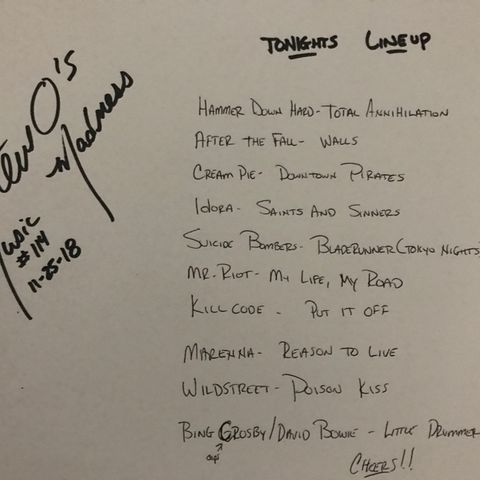 TONIGHTS LINEUP
O'S
Madness
#114
11-25-18
HAMMER DOWN HARD - TOTAL ANNIHILATION
AFTER THE FALL - WALLS
CREAM PIE - DOWNTOWN PIRATES
IDORA - SAINTS AND SINNERS
SUICIDE BOMBERS - BLADERUNNER (TOKYO NIGHTS)
MR. RIOT - MY LIFE, MY ROAD
KILLCODE - PUT IT OFF
MARENNA - REASON TO LIVE
WILDSTREET - POISON KISS
BING CROSBY/DAVID BOWIE - LITTLE DRUMMER
CHEERS!!